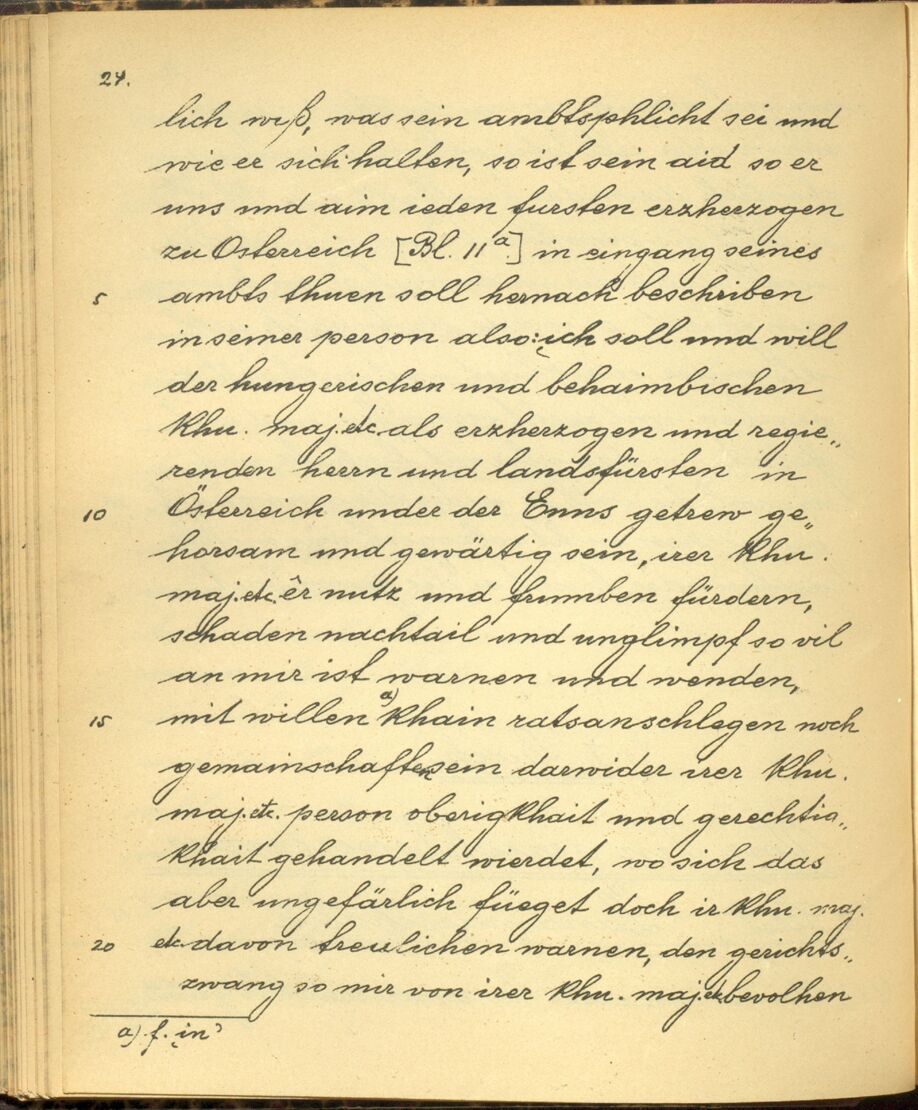 24.
lich wiß, was sein ambtsphlicht sei und
wie er sich halten, so ist sein aid so er
uns und aim ieden fursten erzherzogen
zu Osterreich [Bl. 11a.] in eingang seines
5 ambts thuen soll hernach beschriben
in seiner person also: ich soll und will
der hungerischen und behaimbischen
khu. maj. etc. als erzherzogen und regie„
renden herrn und landsfürsten in
10 Österreich under der Enns getrew ge„
horsam und gewärtig sein, irer khu.
maj. etc. êr nutz und frumben fürdern,
schaden nachtail und unglimpf so vil
an mir ist warnen und wenden,
15 mit willen a) khain ratsanschlegen noch
gemainschaften sein darwider irer khu.
maj. etc. person oberigkhait und gerechtig„
khait gehandelt wierdet, wo sich das
aber ungefärlich füeget doch ir khu. maj.
20 etc. davon treulichen warnen, den gerichts„
zwang so mir von irer khu. maj. etc. bevolhen
a) f. in'